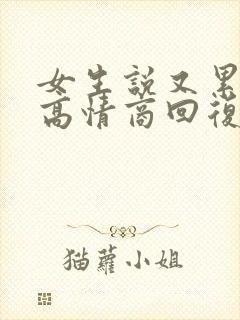 女生説又累
高情商回復
猫蘿小姐